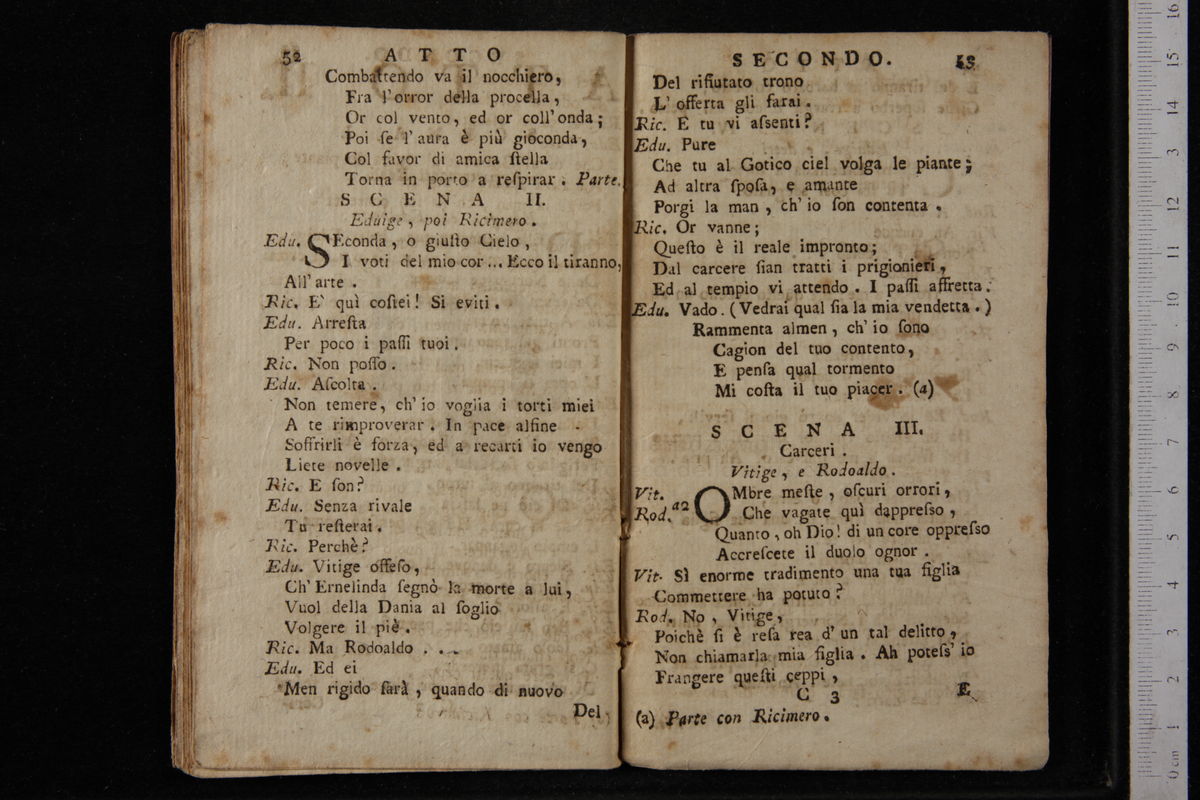 52 ATTO
Combattendo va il nocchiero,
Fra l'orror della procella,
Or col vento, ed or coll'onda;
Poi ſe l'aura è più gioconda,
Col favor di amica ſtella
Torna in porto a reſpirar. Parte.
SCENA II.
Eduige, poi Ricimero.
Edu. SEconda, o giuſto Cielo,
I voti del mio cor... Ecco il tiranno,
All'arte.
Ric. E' quì coſtei! Si eviti.
Edu. Arreſta
Per poco i paſſi tuoi.
Ric. Non poſſo.
Edu. Aſcolta.
Non temere, ch'io voglia i torti miei
A te rimproverar. In pace alfine
Soffrirli è forza, ed a recarti io vengo
Liete novelle.
Ric. E ſon?
Edu. Senza rivale
Tu reſterai.
Ric. Perchè?
Edu. Vitige offeſo,
Ch'Ernelinda ſegnò la morte a lui,
Vuol della Dania al ſoglio
Volgere il piè.
Ric. Ma Rodoaldo...
Edu. Ed ei
Men rigido ſarà, quando di nuovo
Del
SECONDO. 53
Del rifiutato trono
L'offerta gli farai.
Ric. E tu vi aſsenti?
Edu. Pure
Che tu al Gotico ciel volga le piante;
Ad altra ſpoſa, e amante
Porgi la man, ch'io ſon contenta.
Ric. Or vanne;
Queſto è il reale impronto;
Dal carcere ſian tratti i prigionieri,
Ed al tempio vi attendo. I paſſi affretta.
Edu. Vado. (Vedrai qual ſia la mia vendetta.)
Rammenta almen, ch'io ſono
Cagion del tuo contento,
E penſa qual tormento
Mi coſta il tuo piacer. (a)
SCENA III.
Carceri.
Vitige, e Rodoaldo.
Vit. OMbre meſte, oſcuri orrori,
Rod. a2 Che vagate quì dappreſso,
Quanto, oh Dio! di un core oppreſso
Accreſcete il duolo ognor.
Vit. Sì enorme tradimento una tua figlia
Commettere ha potuto?
Rod. No, Vitige,
Poichè ſi è reſa rea d'un tal delitto,
Non chiamarla mia figlia. Ah poteſs'io
Frangere queſti ceppi,
C 3 E
(a) Parte con Ricimero.